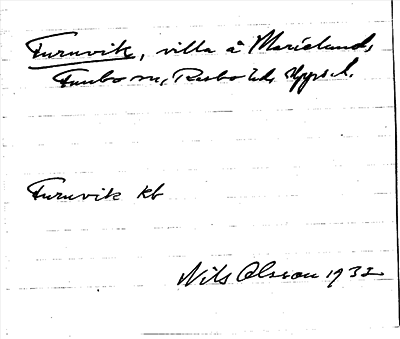 Furuvik, villa å Marielund,
Funbo sn, Rasbo hd, Upps. l.
Furuvik kb
Nils Olsson 1932